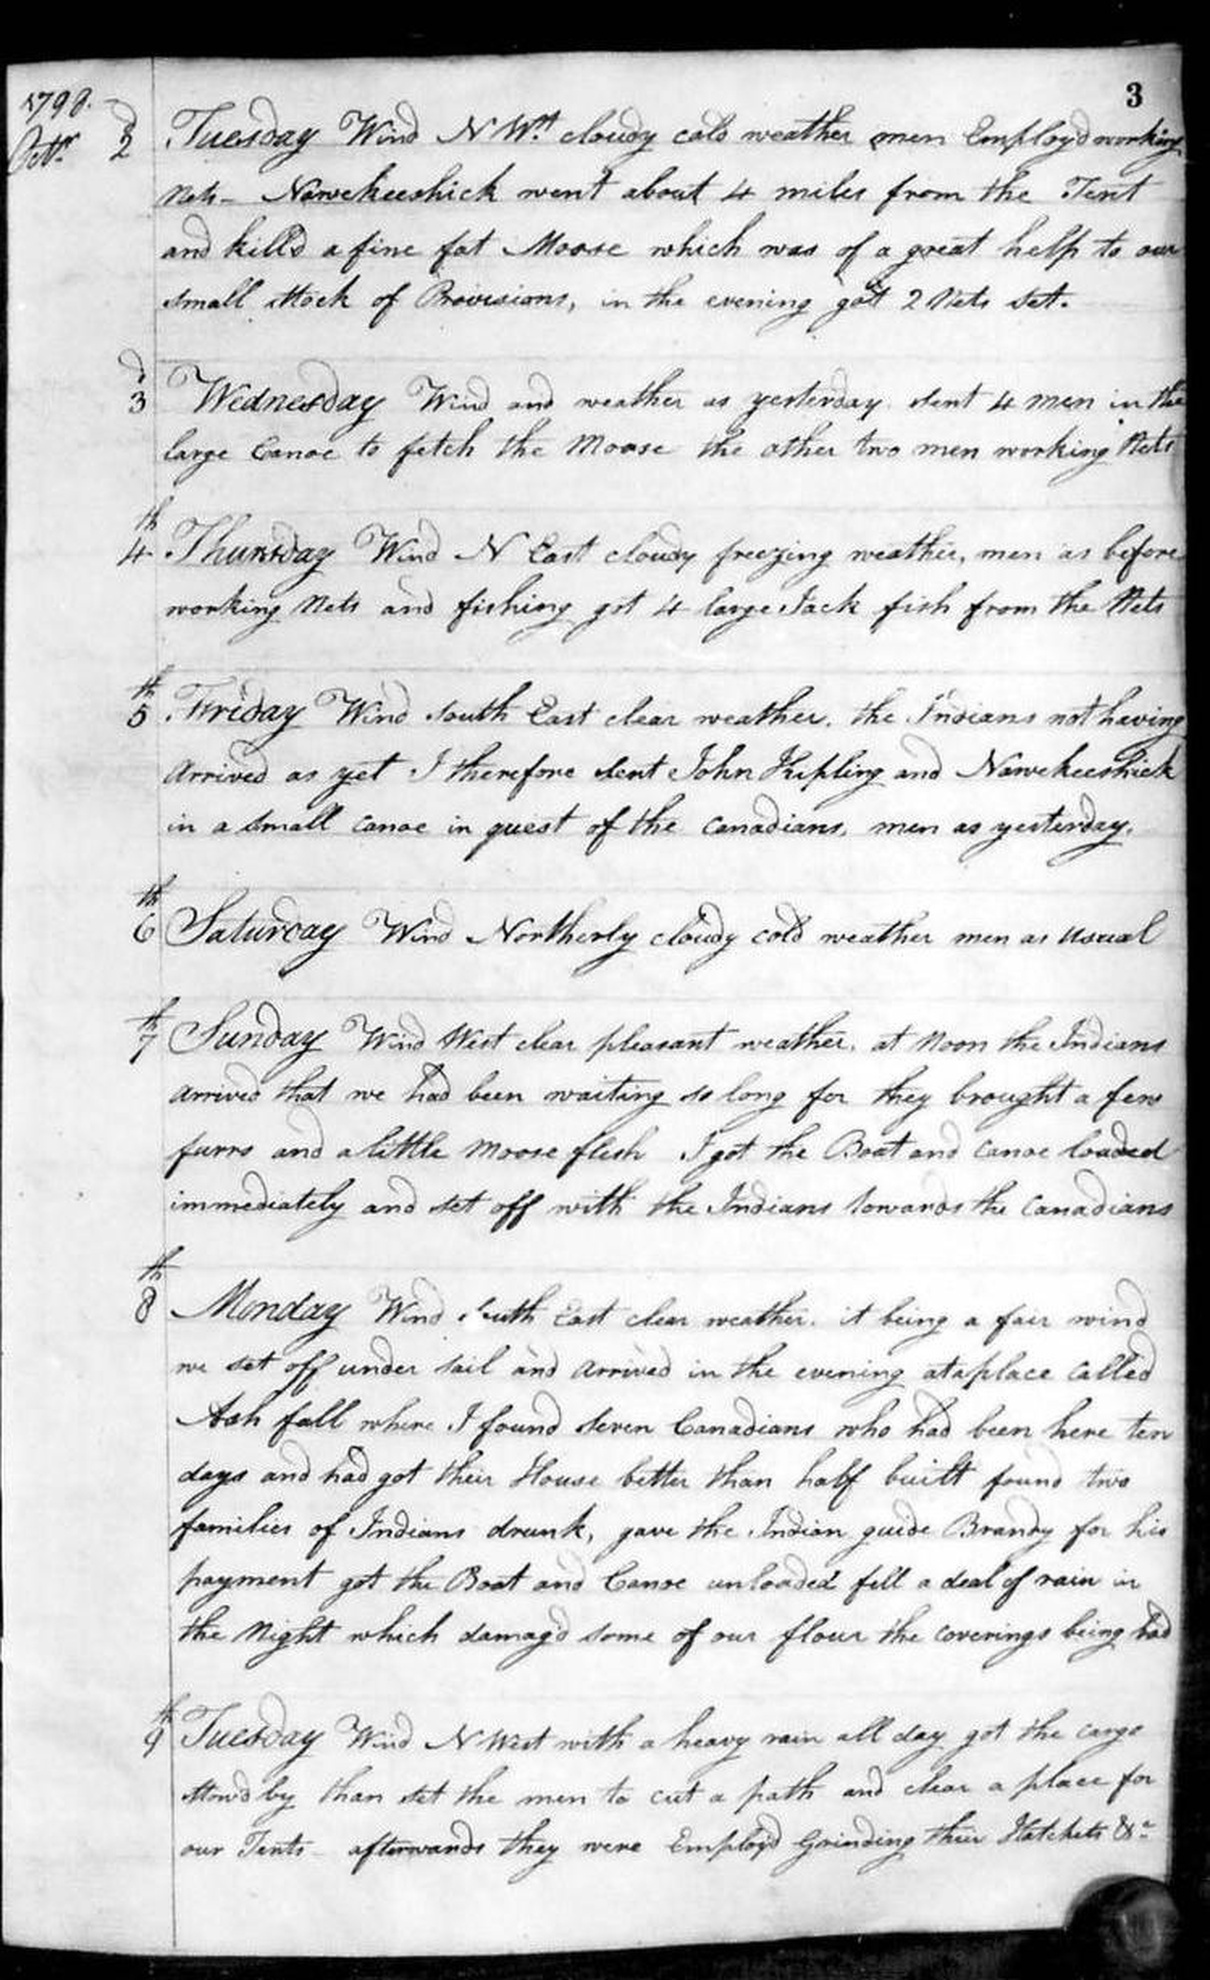 3
1798.
Octr 2d Tuesday Wind N Wt cloudy cold weather men Employd working
Nets – Nawekeeshick went about 4 miles from the Tent
and killd a fine fat Moose which was of a great help to our
small stock of Provisions, in the evening got 2 Nets set.
3d Wednesday Wind and weather as yesterday sent 4 men in the
large Canoe to fetch the Moose the other two men working Nets
4th Thursday Wind N East cloudy freezing weather, men as before
working Nets and fishing got 4 large Jack fish from the Nets
5th Friday Wind South East clear weather. the Indians not having
Arrived as yet I therefore sent John Kipling and Nawekeeshick
in a small canoe in quest of the Canadians, men as yesterday.
6th Saturday Wind Northerly cloudy cold weather men as usual
7th Sunday Wind West clear pleasant weather, at Noon the Indians
arrived that we had been waiting so long for they brought a few
furrs and a little Moose flesh I got the Boat and Canoe loaded
immediately and set off with the Indians towards the Canadians
8th Monday Wind South East clear weather. it being a fair wind
we set off under sail and arrived in the evening at a place called
Ash fall where I found seven Canadians who had been here ten
days and had got their House better than half built found two
families of Indians drunk, gave the Indian guide Brandy for his
payment got the Boat and Canoe unloaded fell a deal of rain in
the Night which damagd some of our flour the coverings being bad
9th Tuesday Wind N West with a heavy rain all day got the cargo
stowd by than set the men to cut a path and clear a place for
our Tents – afterwards they were Employd Grinding their Hatchets &c